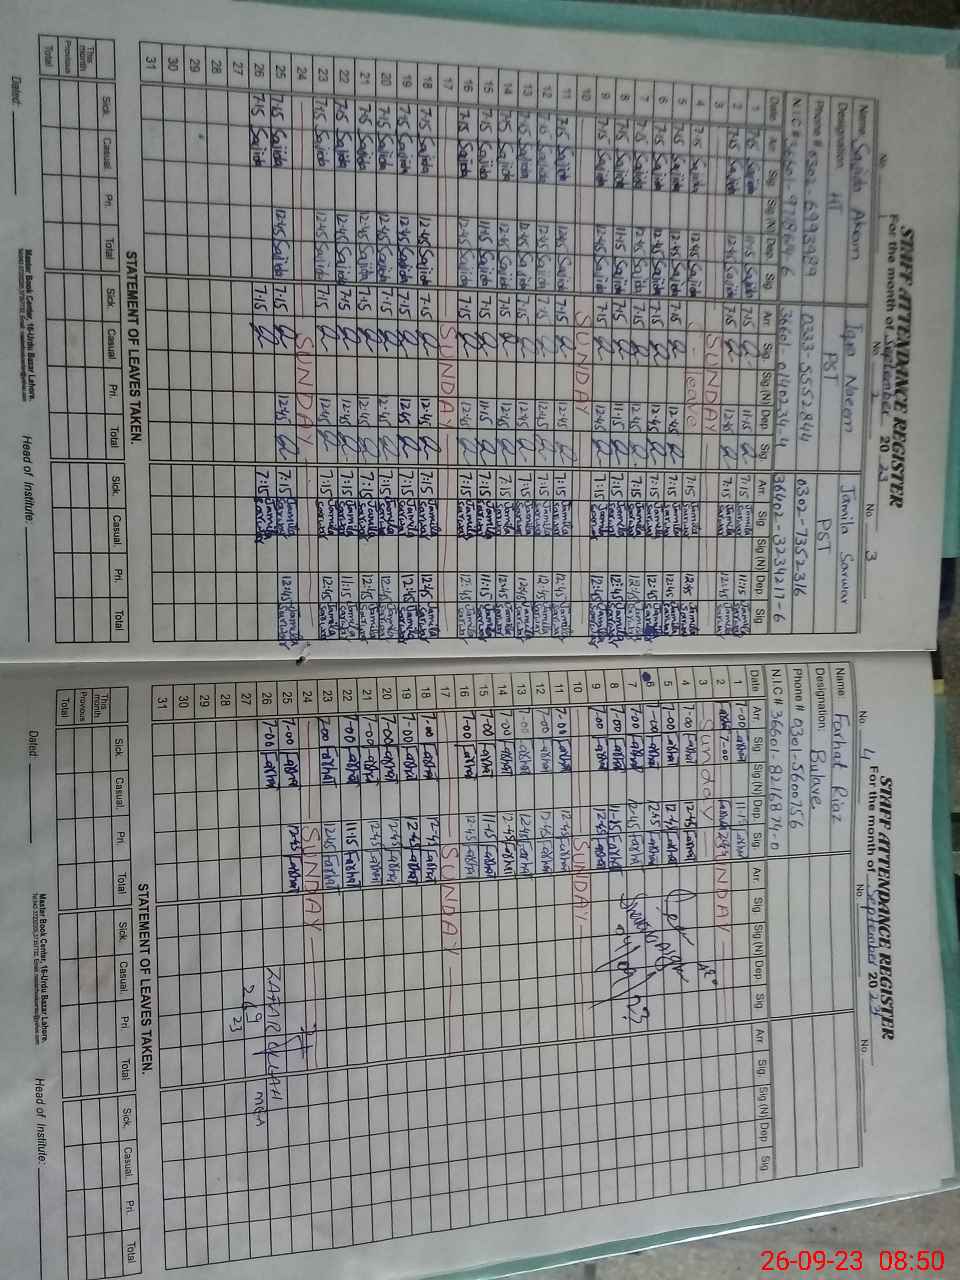 STAFF ATTENDANCE REGISTER
For the month of September 2023
No. No. 2 No. 3
Name: Sajida Akram Iqra Naeem Jamila Sarwar
Designation: HT PST PST
Phone # 0302-6993989 0333-5552844 0302-7352316
N.I.C # 36601-0140234-4 36402-3234217-6
Date Arr. Sig. Sig (N) Dep. Sig. Arr. Sig. Sig (N) Dep. Sig. Arr. Sig Sig (N) Dep. Sig
1 7:15 Sajida 11:15 Sajida 7:15 11:15 7:15 Jamila Sarwar 11:15 Jamila Sarwar
2 7:15 Sajida 12:45 Sajida 7:15 12:45 7:15 Jamila Sarwar 12:45 Jamila Sarwar
3 SUNDAY
4 7:15 Sajida 12:45 Sajida leave 7:15 Jamila Sarwar 12:45 Jamila Sarwar
5 7:15 Sajida 12:45 Sajida 7:15 12:45 7:15 Jamila Sarwar 12:45 Jamila Sarwar
6 7:15 Sajida 12:45 Sajida 7:15 12:45 7:15 Jamila Sarwar 12:45 Jamila Sarwar
7 7:15 Sajida 12:45 Sajida 7:15 12:45 7:15 Jamila Sarwar 12:45 Jamila Sarwar
8 7:15 Sajida 11:15 Sajida 7:15 11:15 7:15 Jamila Sarwar 12:45 Jamila Sarwar
9 7:15 Sajida 12:45 Sajida 7:15 12:45 7:15 Jamila Sarwar 12:45 Jamila Sarwar
10 SUNDAY
11 7:15 Sajida 12:45 Sajida 7:15 12:45 7:15 Jamila Sarwar 12:45 Jamila Sarwar
12 7:15 Sajida 12:45 Sajida 7:15 12:45 7:15 Jamila Sarwar 12:45 Jamila Sarwar
13 7:15 Sajida 12:45 Sajida 7:15 12:45 7:15 Jamila Sarwar 12:45 Jamila Sarwar
14 7:15 Sajida 12:45 Sajida 7:15 12:45 7:15 Jamila Sarwar 12:45 Jamila Sarwar
15 7:15 Sajida 11:45 Sajida 7:15 11:15 7:15 Jamila Sarwar 11:15 Jamila Sarwar
16 7:15 Sajida 12:45 Sajida 7:15 12:45 7:15 Jamila Sarwar 12:45 Jamila Sarwar
17 SUNDAY
18 7:15 Sajida 12:45 Sajida 7:15 12:45 7:15 Jamila Sarwar 12:45 Jamila Sarwar
19 7:15 Sajida 12:45 Sajida 7:15 12:45 7:15 Jamila Sarwar 12:45 Jamila Sarwar
20 7:15 Sajida 12:45 Sajida 7:15 12:45 7:15 Jamila Sarwar 12:45 Jamila Sarwar
21 7:15 Sajida 12:45 Sajida 7:15 12:45 7:15 Jamila Sarwar 12:45 Jamila Sarwar
22 7:15 Sajida 12:45 Sajida 7:15 12:45 7:15 Jamila Sarwar 11:15 Jamila Sarwar
23 7:15 Sajida 12:45 Sajida 7:15 12:45 7:15 Jamila Sarwar 12:45 Jamila Sarwar
24 SUNDAY
25 7:15 Sajida 12:45 Sajida 7:15 12:45 7:15 Jamila Sarwar 12:45 Jamila Sarwar
26 7:15 Sajida 7:15 7:15 Jamila Sarwar
27
28
29
30
31
STATEMENT OF LEAVES TAKEN.
Sick. Casual Pri. Total Sick. Casual. Pri. Total Sick. Casual. Pri. Total
This month
Previous
Total
Dated: Head of Institute:
Master Book Center, 16-Urdu Bazar Lahore.
STAFF ATTENDANCE REGISTER
For the month of September 2023
No. 4 No. No.
Name: Farhat Riaz
Designation: Bulave
Phone # 0301-5600756
N.I.C # 36601-8216874-0
Date Arr. Sig. Sig (N) Dep. Sig. Arr. Sig. Sig (N) Dep. Sig. Arr. Sig. Sig (N) Dep. Sig
1 7-00 Farhat 11:15 Farhat
2 7-00
3 Sunday SUNDAY
4 7-00 Farhat 12:45 Farhat
5 7-00 Farhat 12:45 Farhat
6 7-00 Farhat 12:15 Farhat
7 7-00 Farhat 12:45 Farhat
8 7-00 Farhat 11:15 Farhat
9 7-00 Farhat 12:45 Farhat
10 SUNDAY
11 7-00 Farhat 12:45 Farhat
12 7-00 Farhat 12:45 Farhat
13 7-00 Farhat 12:45 Farhat
14 7-00 Farhat 12:45 Farhat
15 7-00 Farhat 11:45 Farhat
16 7-00 Farhat 12:45 Farhat
17 SUNDAY
18 7-00 Farhat 12:45 Farhat
19 7-00 Farhat 12:45 Farhat
20 7-00 Farhat 12:45 Farhat
21 7-00 Farhat 12:45 Farhat
22 7-00 Farhat 11:15 Farhat
23 7-00 Farhat 12:45 Farhat
24 SUNDAY
25 7-00 Farhat 12:45 Farhat
26 7-00 Farhat ZAFAR ULLAH MEA
27 26 9 23
28
29
30
31
STATEMENT OF LEAVES TAKEN.
Sick. Casual. Pri. Total Sick. Casual. Pri. Total Sick. Casual. Pri. Total
This month
Previous
Total
Dated: Head of Institute:
Master Book Center, 16-Urdu Bazar Lahore.
26-09-23 08:50